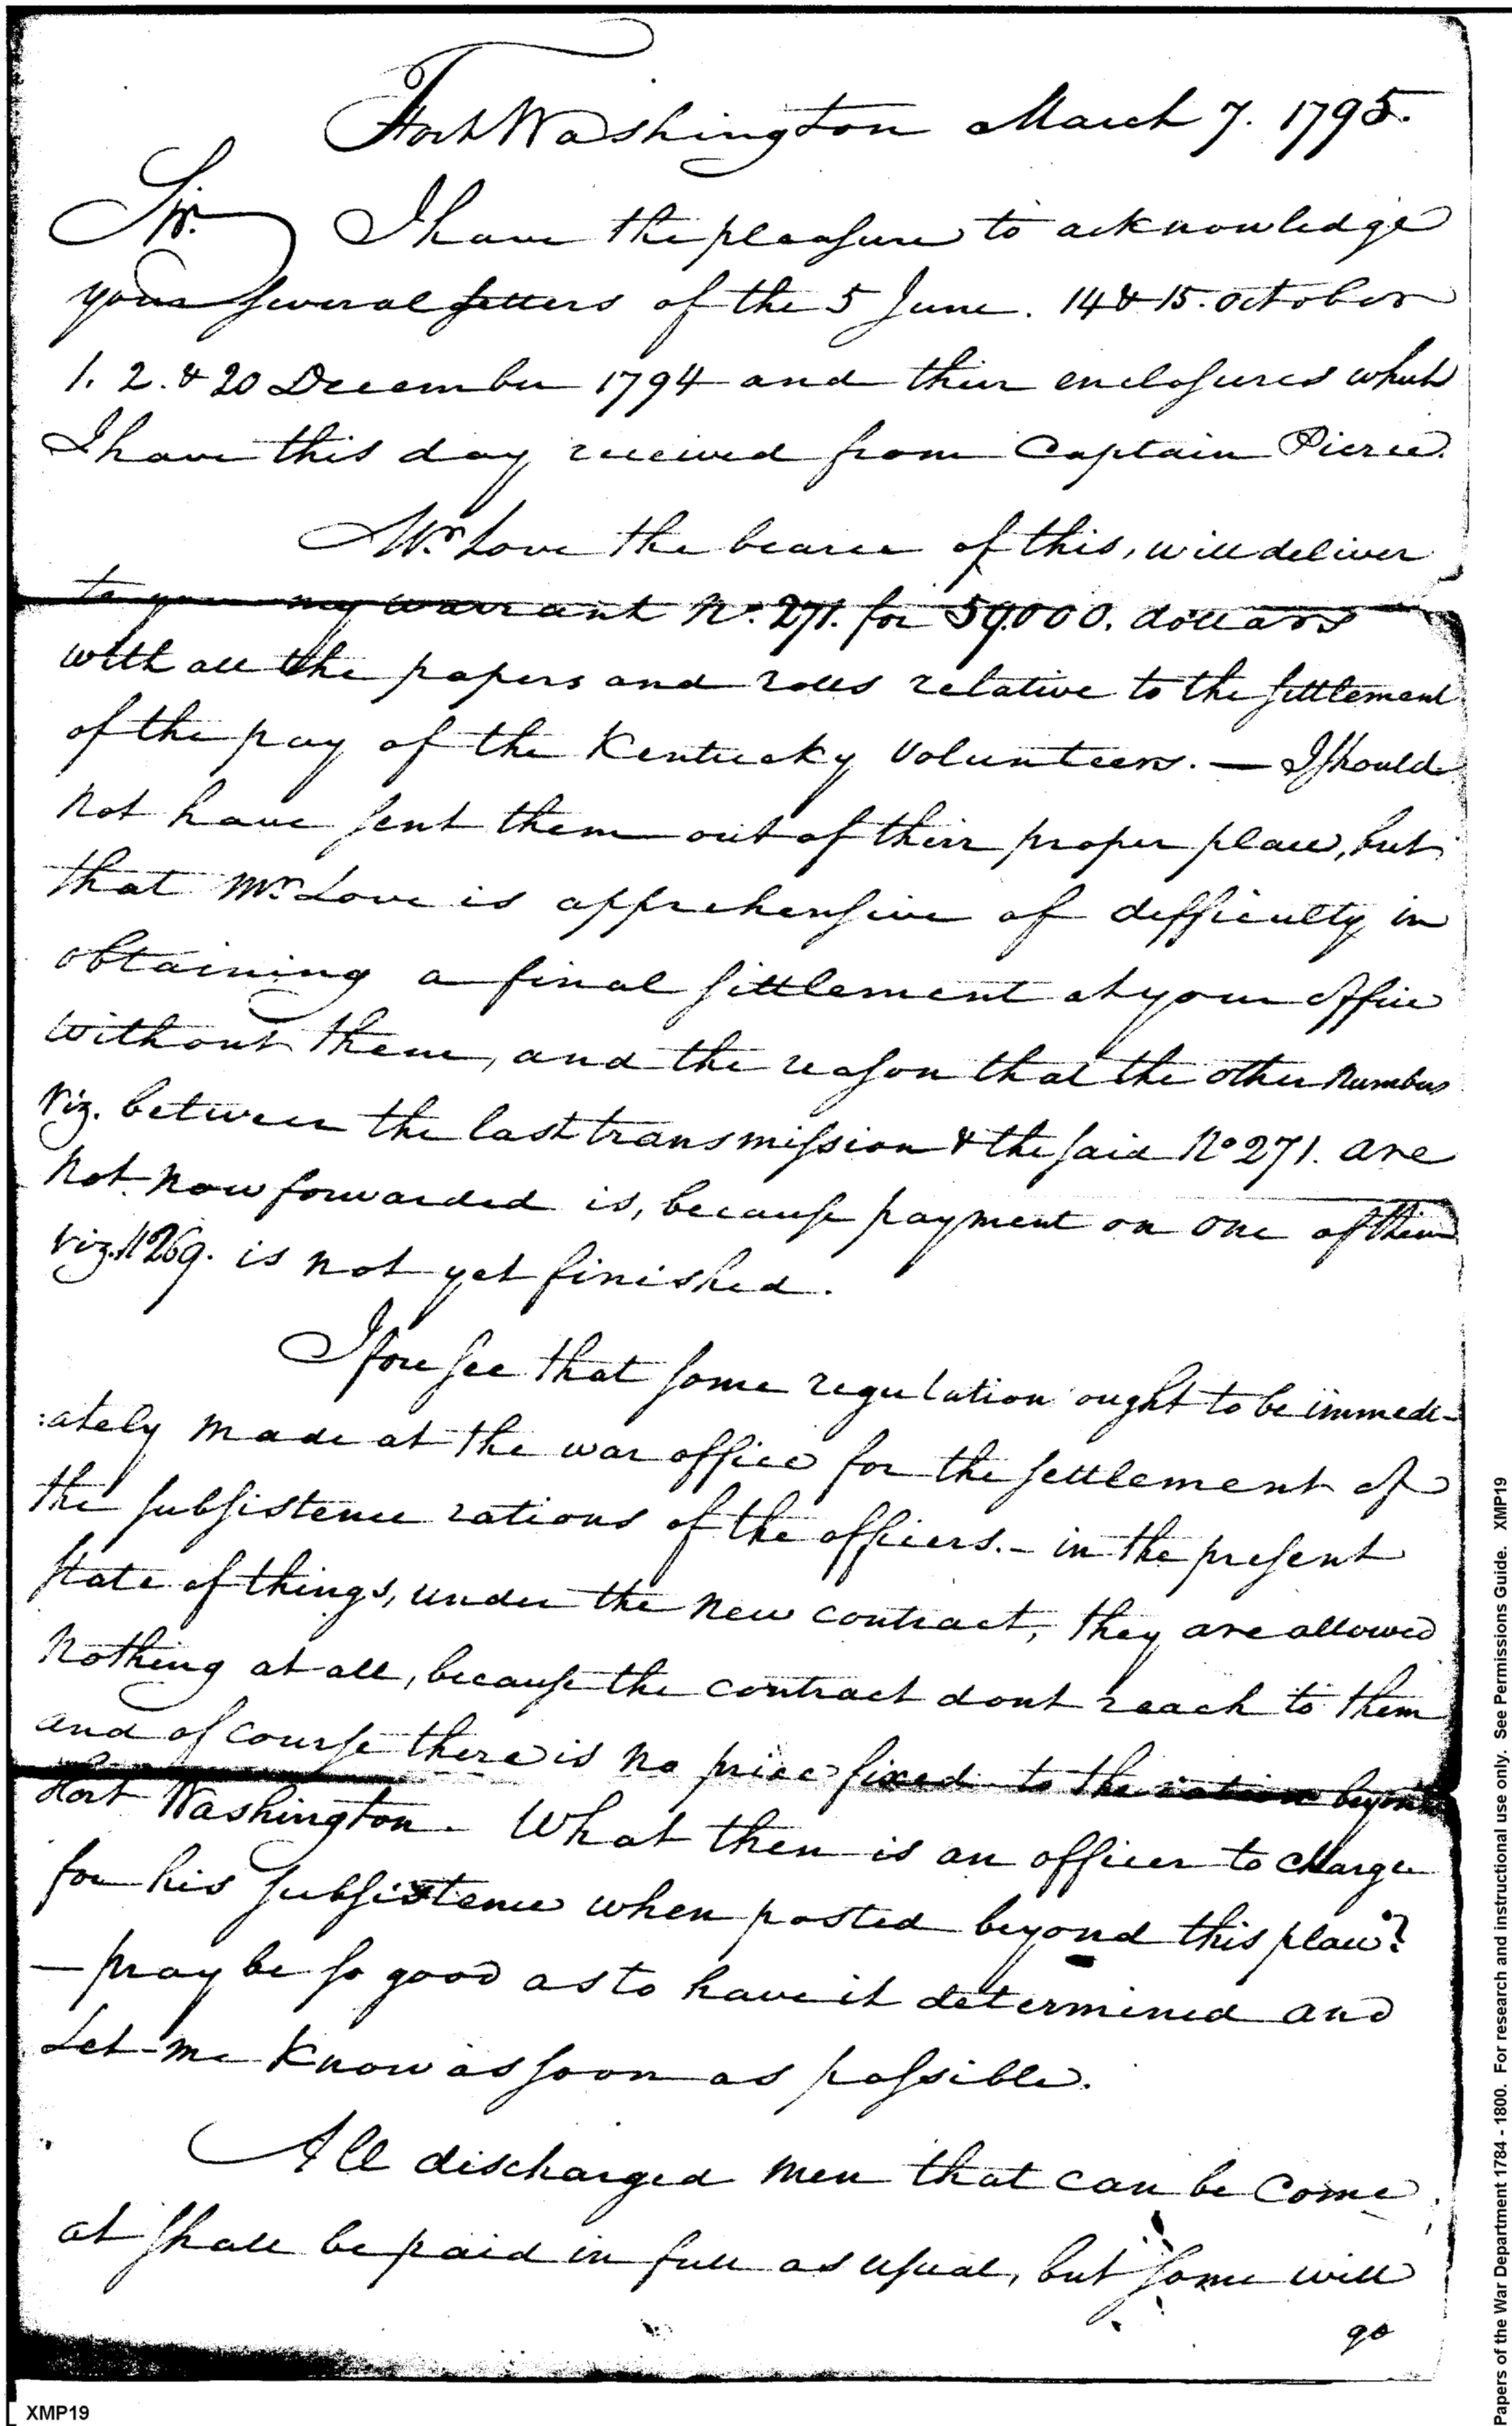 Fort Washington March 7. 1795.
Sir. I have the pleasure to acknowledge
your several letters of the 5 June. 14 & 15. October
1. 2. & 20 December 1794 and their enclosures which
I have this day received from Captain Pierce.
Mr. Love the bearer of this, will deliver
to you my warrant No. 271. for 59.000. dollars
with all the papers and rolls relative to the settlement
of the pay of the Kentucky Volunteers. — I should
not have sent them out of their proper place, but
that Mr. Love is apprehensive of difficulty in
obtaining a final settlement at your office
without them, and the reason that the other numbers
viz. between the last transmission & the said No 271. are
not now forwarded is, because payment on one of them
viz. No 269. is not yet finished.
I foresee that some regulation ought to be immedi-
:ately made at the war office for the settlement of
the subsistence rations of the officers. - in the present
state of things, under the new contract, they are allowed
nothing at all, because the contract dont reach to them
and of course there is no price fixed to the ration beyond
Fort Washington. What then is an officer to charge
for his subsistence when posted beyond this place?
— pray be so good as to have it determined and
let me know as soon as possible.
All discharged men that can be come
at shall be paid in full as usual, but some will
go
XMP19
Papers of the War Department 1784 - 1800. For research and instructional use only. See Permissions Guide. XMP19